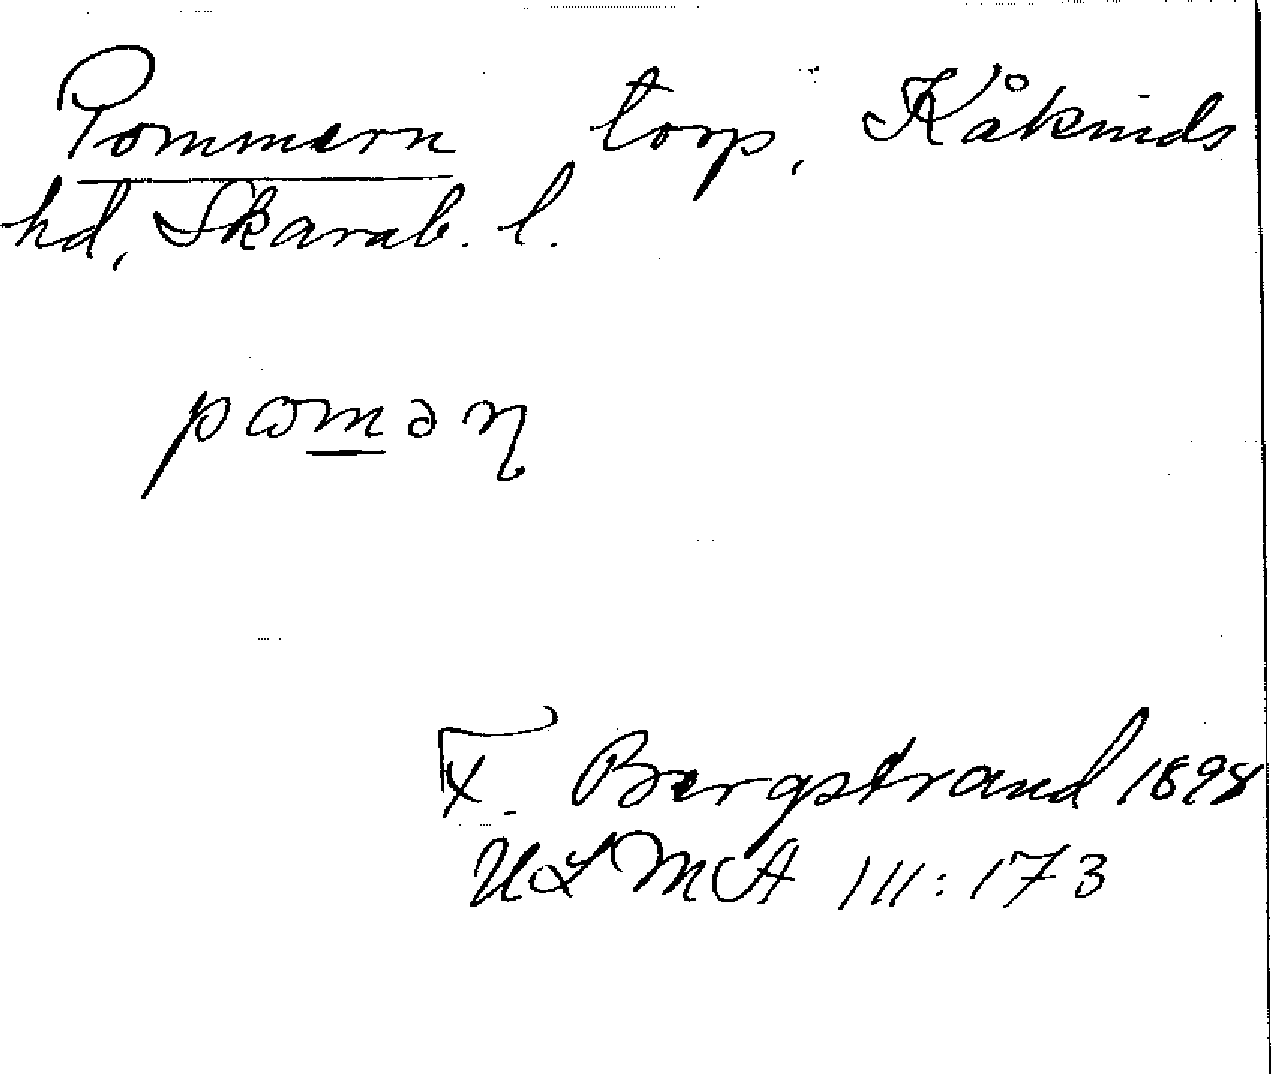 Pommern torp, Kåkinds
hd, Skarab. l.
pωməɳ
F. Bergstrand 1898
ULMA 111:173